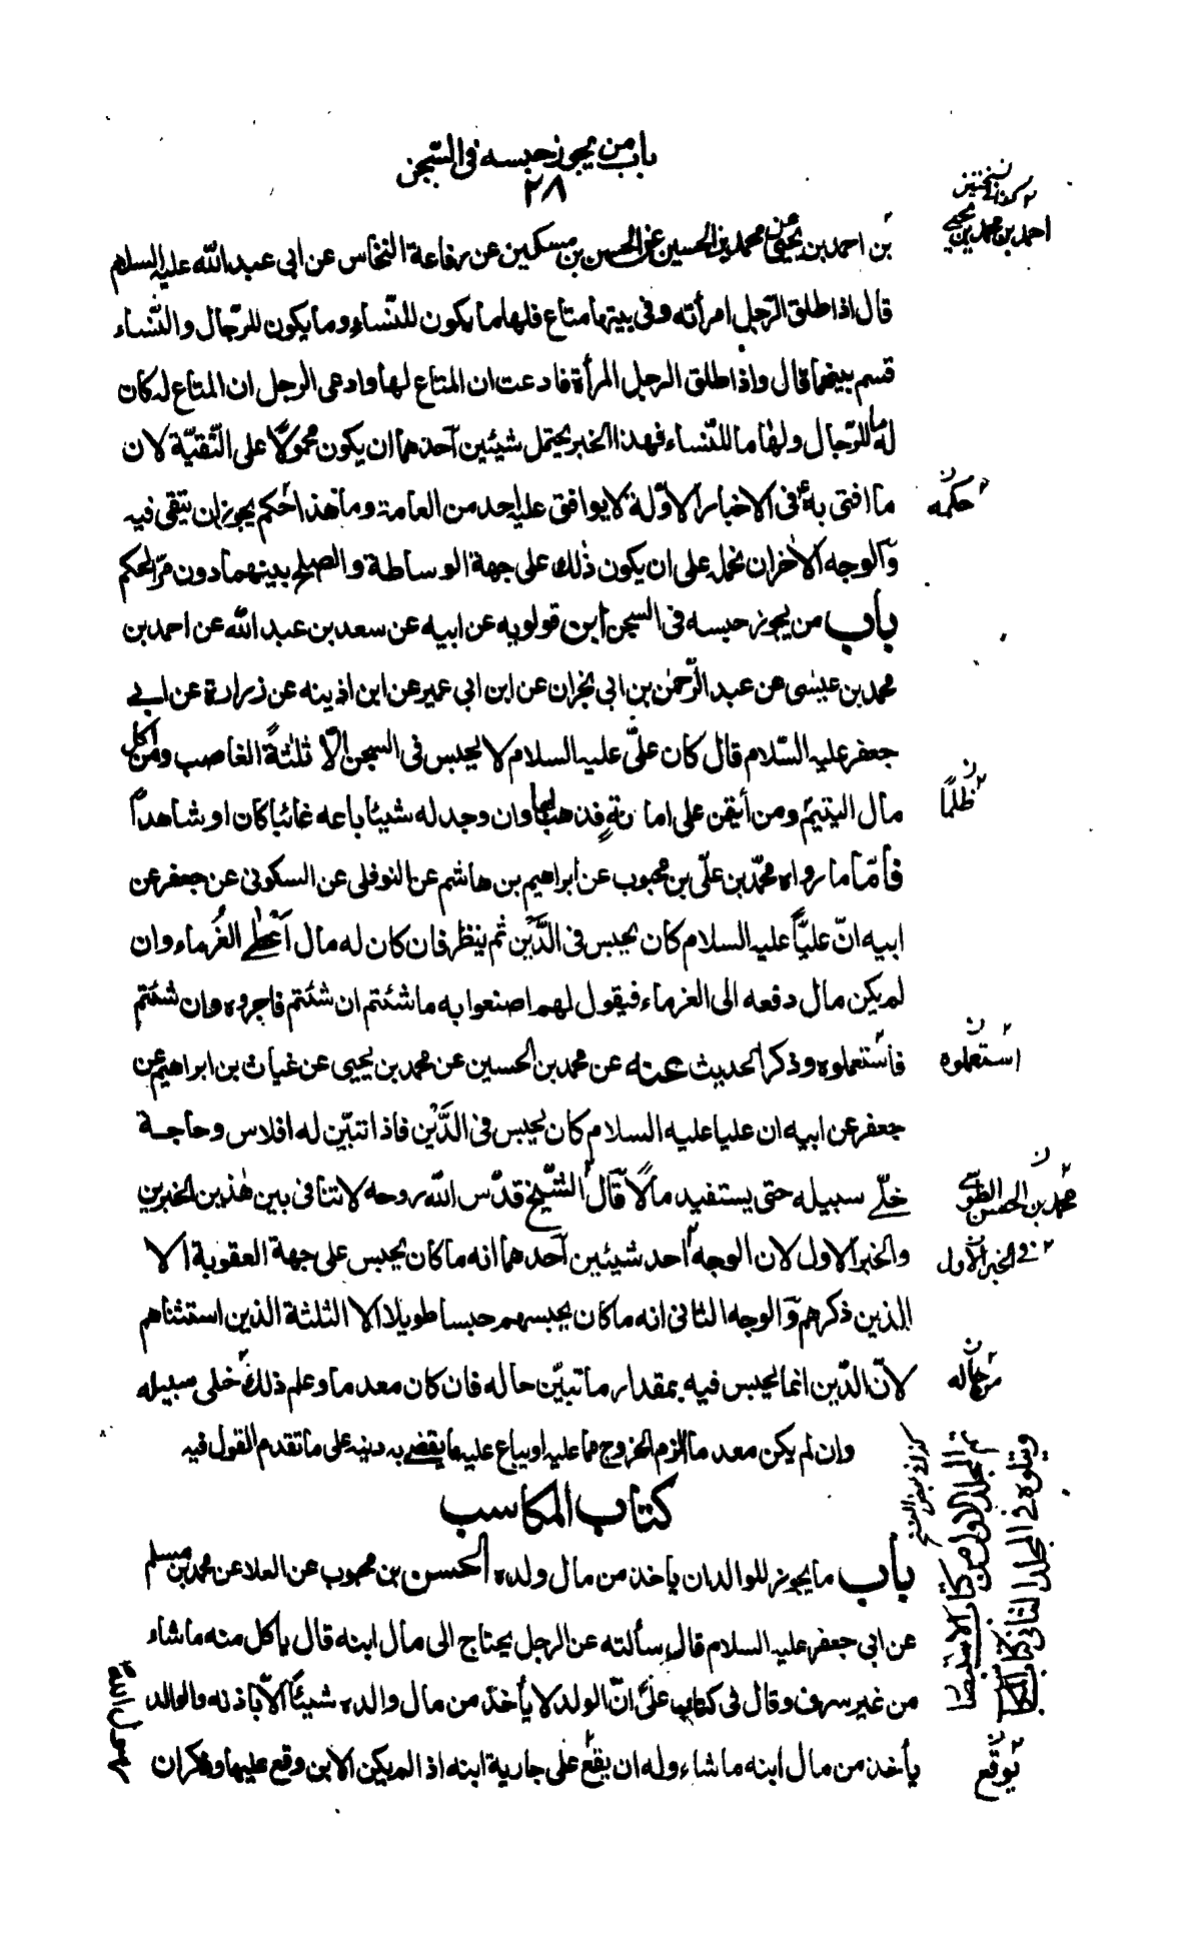 باب من يجوز حبسه فى السّجن
٢٨
بن احمد بن يحيى عن محمد بن الحسين عن الحسن بن مسكين عن رفاعة النخاس عن ابى عبد الله عليه السلام
قال اذا طلق الرّجل امرأته وفى بيتها متاع فلها ما يكون للنّساء وما يكون للرّجال والنّساء
قسم بينهما قال واذا طلق الرجل المرأة فادعت ان المتاع لها وادعى الرجل ان المتاع له كان
له ما للرّجال ولها ما للنّساء فهذا الخبر يحتمل شيئين آحدهما ان يكون محمولاً على التّقيّة لان
ما افتى به فى الاخبار الاوّلة لا يوافق عليه احد من العامة وما هذا حكم يجوز ان يتقى فيه
وآلوجه الاخر ان نحمله على ان يكون ذلك على جهة الوساطة والصلح بينهما دون مرّ الحكم
باب من يجوز حبسه فى السجن ابن قولويه عن ابيه عن سعد بن عبد الله عن احمد بن
محمد بن عيسى عن عبد الرّحمن بن ابى نجران عن ابن ابى عمير عن ابن اذينه عن زرارة عن ابى
جعفر عليه السّلام قال كان علىّ عليه السلام لا يحبس فى السجن الّا ثلثةً الغاصب ومن اكل
مال اليتيم ومن أيتمن على امانةٍ فذهب بها وان وجد له شيئا باعه غائبا كان او شاهداً
فأمّا ما رواه محمّد بن علىّ بن محبوب عن ابراهيم بن هاشم عن النوفلى عن السكونى عن جعفر عن
ابيه انّ عليّاً عليه السلام كان يحبس فى الدَّين ثم ينظر فان كان له مال أعطى الغُرماء وان
لم يكن مال دفعه الى الغرماء فيقول لهم اصنعوا به ما شئتم ان شئتم فاجروه وان شئتم
فأستعملوه وذكر الحديث عنه عن محمد بن الحسين عن محمد بن يحيى عن غياث بن ابراهيم عن
جعفر عن ابيه ان عليا عليه السلام كان يحبس فى الدَّين فاذا تبيّن له افلاس وحاجة
خلّى سبيله حتى يستفيد مالاً قال الشّيخ قدّس الله روحه لا تنافى بين هذين الخبرين
والخبر الاول لان الوجه احد شيئين آحدهما انه ما كان يحبس على جهة العقوبة الا
الذين ذكرهم وآلوجه الثانى انه ما كان يحبسهم حبسا طويلا الا الثلثة الذين استثناهم
لانّ الدّين انما يحبس فيه بمقدار ما تبيّن حاله فان كان معدما وعلم ذلك خلى سبيله
وان لم يكن معدما الزم الخروج مما عليه او يباع عليه ما يقضى به دينه على ما تقدم القول فيه
كتاب المكاسب
باب ما يجوز للوالد ان ياخذ من مال ولده الحسن بن محبوب عن العلا عن محمد بن مسلم
عن ابى جعفر عليه السلام قال سألته عن الرجل يحتاج الى مال ابنه قال يأكل منه ما شاء
من غير سرف وقال فى كتاب علىّ انّ الولد لا يأخذ من مال والده شيئاً الّا باذنه والوالد
يأخذ من مال ابنه ما شاء وله ان يقع على جارية ابنه اذا لم يكن الابن وقع عليها وذكر ان
رسول الله ص
كذا فى نسختين
احمد بن محمد بن يحيى
حكمه
ظلمًا
استعملوه
محمد بن الحسن الطوسى
وفى الخبر الاول
من حاله
كذا فى بعض النسخ
تم المجلد الاول من كتاب الاستبصار
ويتلوه فى المجلد الثانى كتاب المكاسب
يوقع